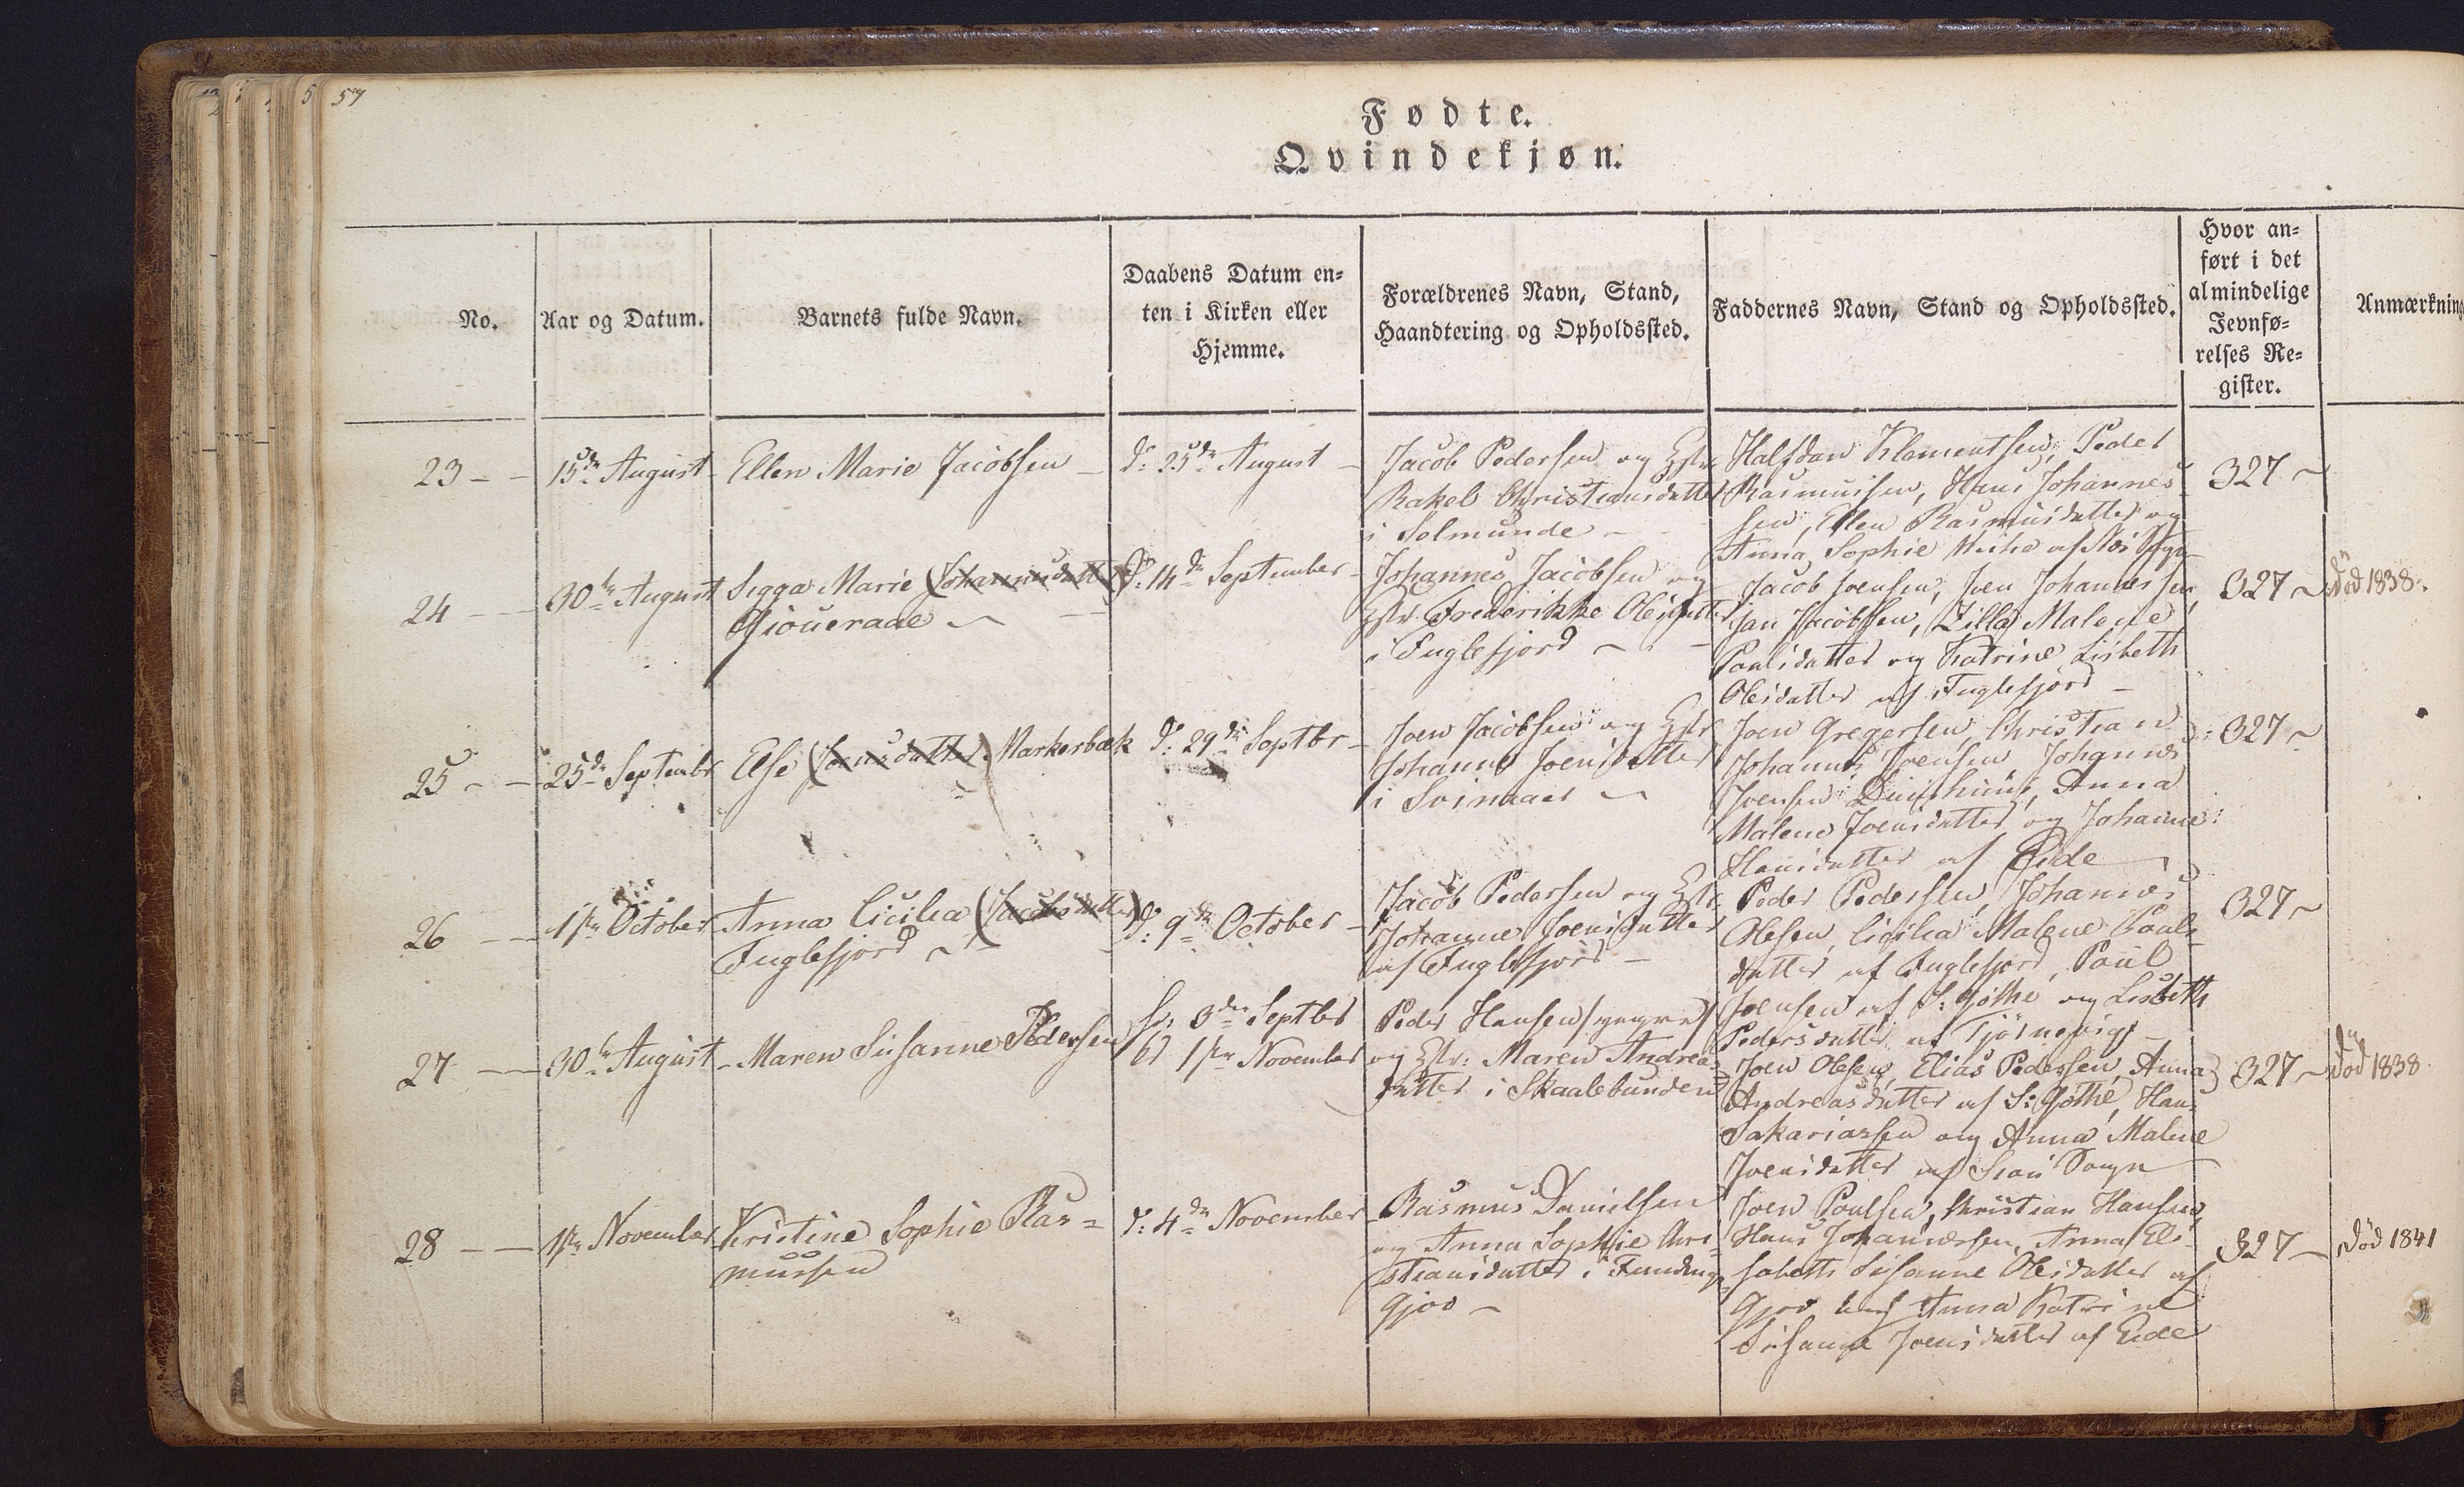 57
Fødte.
Qvindekjøn.
No.
Aar og Datum.
Barnets fulde Navn.
Daabens Datum en=
ten i Kirken eller
Hjemme.
Forældrenes Navn, Stand,
Haandtering og Opholdssted.
Faddernes Navn, Stand og Opholdssted.
Hvor an=
ført i det
almindelige
Jevnfø=
relses Re=
gister.
Anmærkning
23
15de August
Ellen Marie Jacobsen
d: 25de August
Jacob Pedersen og Hstr
Rakel Christiansdatter
i Selmunde
Halfdan Klementsen, Peder
Rasmussen, Hans Johannes
sen, Ellen Rasmusdatter og
Anna Sophie
327
24
30te August
Sigga Marie (Johannesdatter)
Gioueraae
d: 14de September
Johannes Jacobsen og
Hstr Frederikke Olesdatter
i Fuglefjord
Jacob Joensen, Joen Johannessen,
Jan Jacobsen, Zilla Malene
Poulsdatter og Katrine Lisbeth
Olesdatter af Fuglefjord
327
død 1838.
25
25de Septembr
Else (Joensdatter) Markerbæk
d: 29de Septbr
Joen Jacobsen og Hstr
Johanne Joensdatter
i Svinaaer
Joen Gregersen, Christian
Johannes Joensen, Johannes
Joensen Anna
Malene Joensdatter og Johanne
Hansdatter af Eide
327
26
1ste October
Anna Cicilia (Jacobsdatter)
Fuglefjord
d: 9de October
Jacob Pedersen og Hstr
Johanne Joensdatter
af Fuglefjord
Peder Pedersen, Johannes
Olesen, Cicilia Malene Pouls
datter af Fuglefjord, Poul
Joensen af S: Gøthe og Lisbeth
Pedersdatter af Tjørnevig
327
27
30te August
Maren Susanne Pedersen
3die Septbr
1ste November
Peder Hansen
og Hstr: Maren Andreas
datter i Skaalebunden
Joen Olesen, Elias Pedersen, Anna
Andreasdatter af S: Gøthe, Hans
Sakariassen og Anna Malene
Joensdatter af
327
død 1838
28
1ste November
Kristine Sophie Ras=
mussen
d: 4de November
Rasmus Danielsen
og Anna Sophie Chri
stiansdatter i Funding
Gjov
Joen Poulsen, Christian Hansen,
Hans Johannessen, Anna Eli
sabeth Susanne Olesdatter af
Gjov, Anna Katrine
Susanne Joensdatter af Eide
327
død 1841